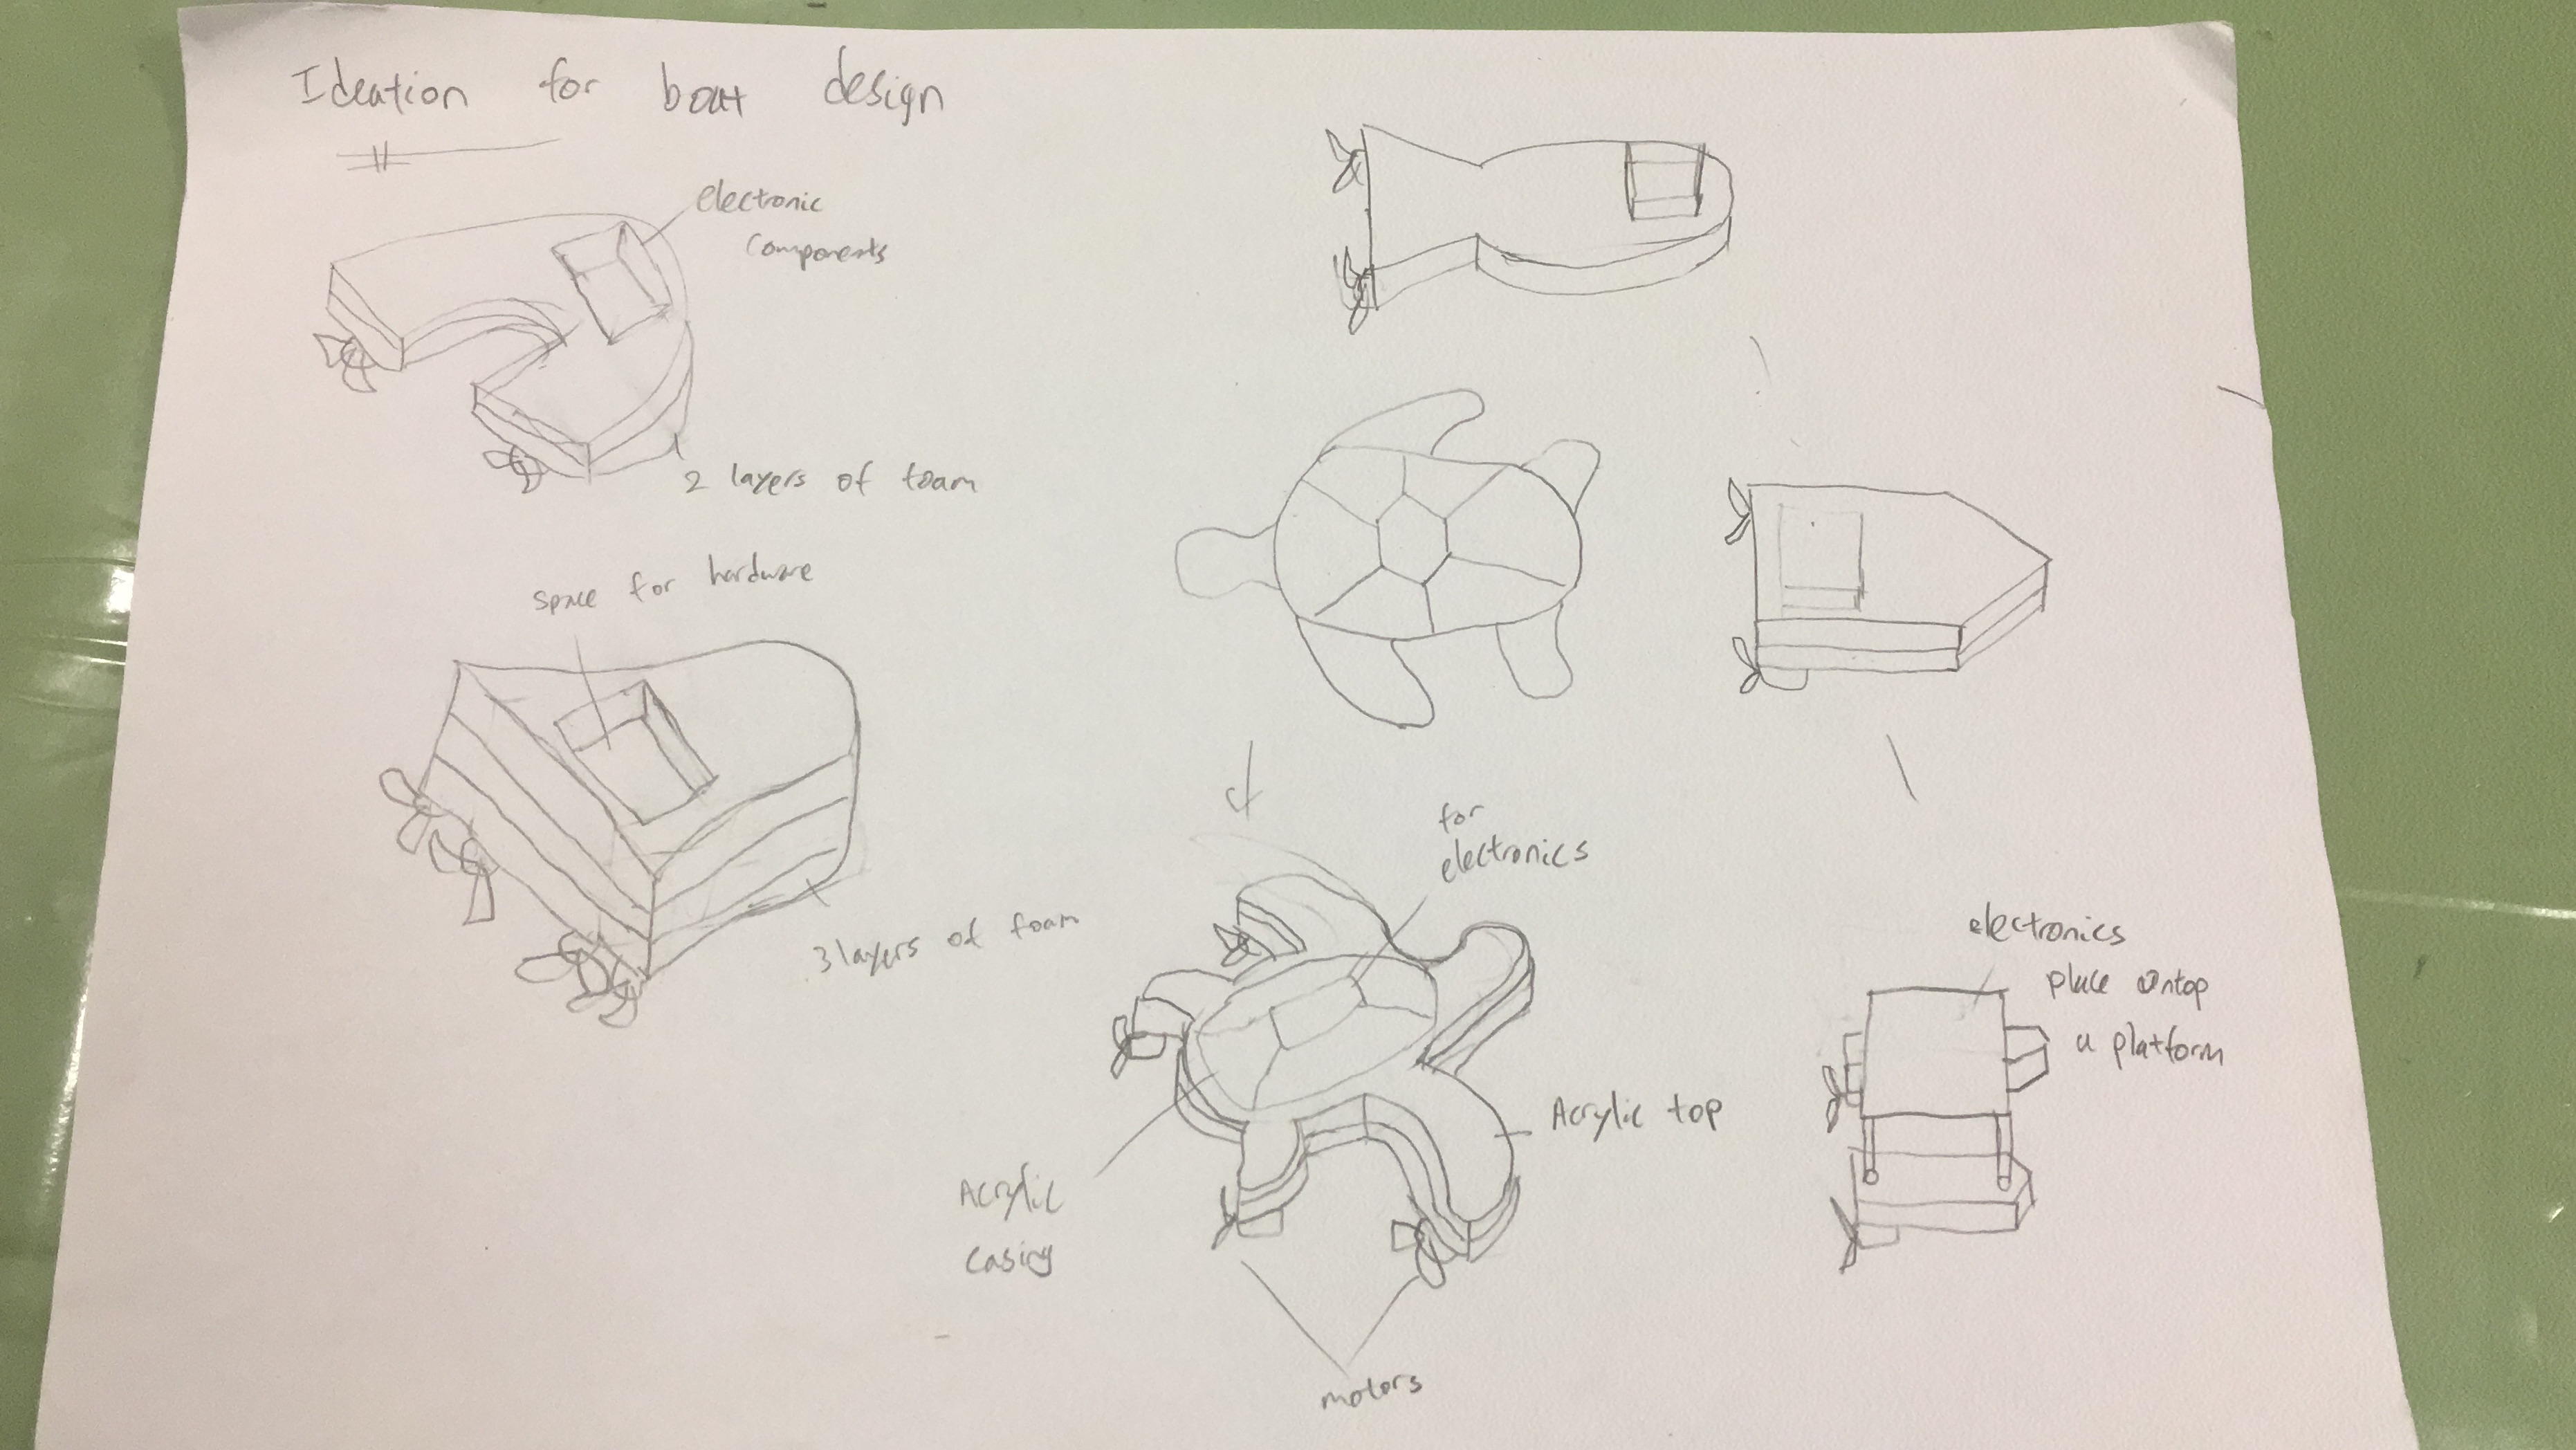 Ideation for boat design
electronic
components
2 layers of foam
space for hardware
3 layers of foam
for
electronics
Acrylic top
Acrylic
casing
motors
electronics
place ontop
a platform